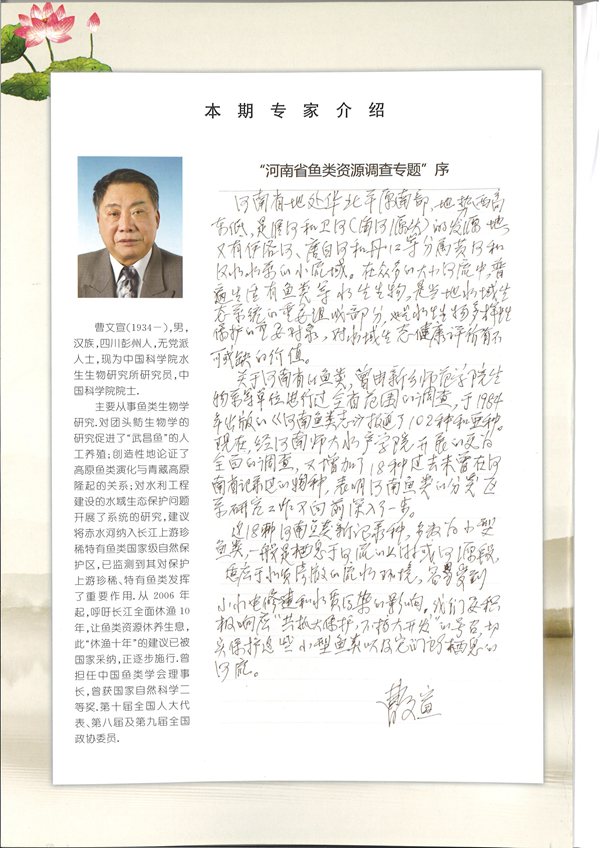 本期专家介绍
曹文宣(1934-),男,
汉族,四川彭州人,无党派
人士,现为中国科学院水
生生物研究所研究员,中
国科学院院士.
主要从事鱼类生物学
研究.对团头鲂生物学的
研究促进了“武昌鱼”的人
工养殖;创造性地论证了
高原鱼类演化与青藏高原
隆起的关系;对水利工程
建设的水域生态保护问题
开展了系统的研究,建议
将赤水河纳入长江上游珍
稀特有鱼类国家级自然保
护区,已监测到其对保护
上游珍稀、特有鱼类发挥
了重要作用.从 2006 年
起,呼吁长江全面休渔 10
年,让鱼类资源休养生息,
此“休渔十年”的建议已被
国家采纳,正逐步施行.曾
担任中国鱼类学会理事
长,曾获国家自然科学二
等奖.第十届全国人大代
表、第八届及第九届全国
政协委员.
“河南省鱼类资源调查专题”序
河南省地处华北平原南部,地势西高
东低,是淮河和卫河(海河源头)的发源地,
又有伊洛河、唐白河和丹江等分属黄河和
汉水水系的小流域。在众多的大小河流中,普
遍生活有鱼类等水生生物,是当地水域生
态系统的重要组成部分,也是水生生物多样性
保护的重要对象,对水域生态健康评价有不
可或缺的价值。
关于河南省的鱼类,曾由新乡师范学院生
物系等单位进行过全省范围的调查,于1984
年出版的《河南鱼类志》报道了102种和亚种。
现在,经河南师大水产学院开展的更为
全面的调查,又增加了18种过去未曾在河
南省记录过的物种,表明河南鱼类的分类区
系研究工作又向前深入了一步。
这18种河南鱼类新记录种,多数为小型
鱼类,一般是栖息于河流的上游或河源段,
适应于水质清澈的流水环境,容易受到
小水电修建和水质污染的影响。我们应积
极响应“共抓大保护,不搞大开发”的号召,切
实保护这些小型鱼类以及它们所栖息的
河流。
曹文宣